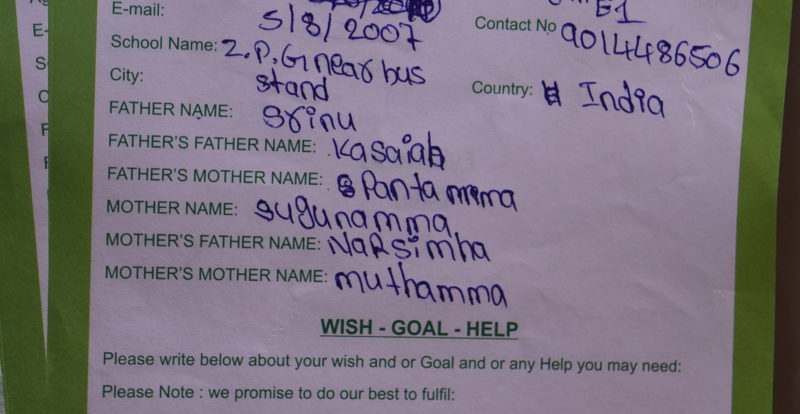 E-mail:
5/8/2007
Contact No 9014486506
School Name: Z.P.G near bus
stand
City:
Country: India
FATHER NAME: Srinu
FATHER'S FATHER NAME: Kasaiah
FATHER'S MOTHER NAME: Pantamma
MOTHER NAME: Sugunamma
MOTHER'S FATHER NAME: Narsimha
MOTHER'S MOTHER NAME: muthamma
WISH - GOAL - HELP
Please write below about your wish and or Goal and or any Help you may need:
Please Note : we promise to do our best to fulfil: